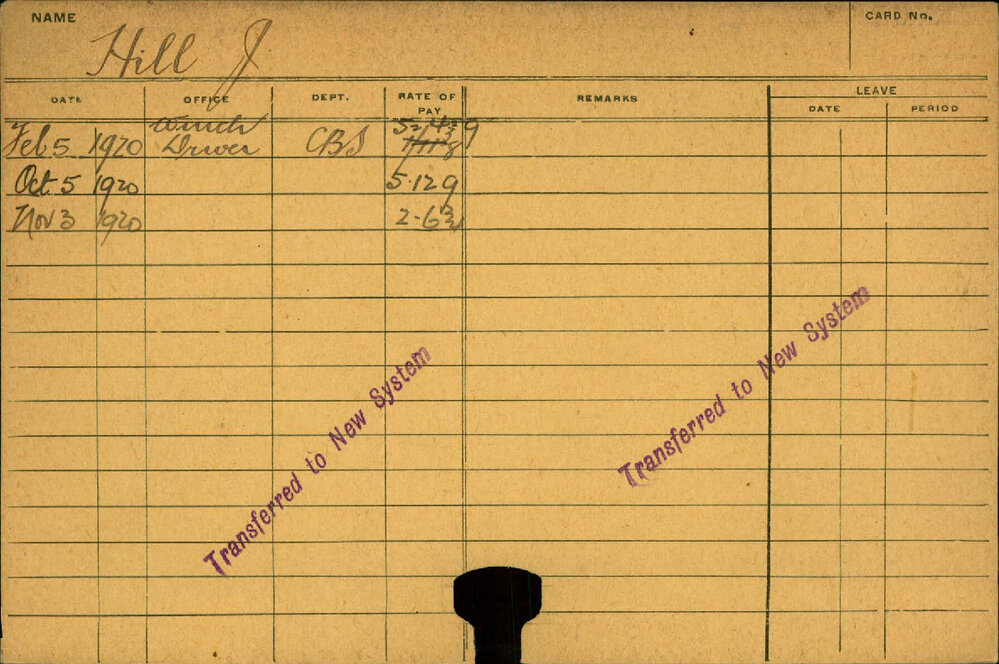 NAME
CARD No.
Hill J
DATE OFFICE DEPT. RATE OF PAY REMARKS LEAVE
DATE PERIOD
Feb 5 1920 Winch Driver CBS
Oct 5 1920 5.12 9
Nov 3 1920 2-6¾
Transferred to New System
Transferred to New System